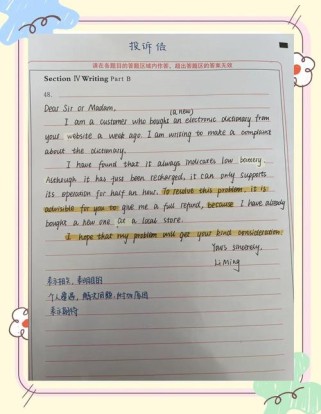 投诉信
请在各题目的答题区域内作答，超出答题区的答案无效
Section IV Writing Part B
48.
Dear Sir or Madam,
(a new)
I am a customer who bought an electronic dictionary from
your website a week ago. I am writing to make a complaint
about the dictionary.
I have found that it always indicates low battery.
Although it has just been recharged, it can only supports
its operation for half an hour. To resolve this problem, it is
advisable for you to give me a full refund, because I have already
bought a new one at a local store.
I hope that my problem will get your kind consideration.
Yours sincerely,
Li Ming
个人遭遇,
表示期待